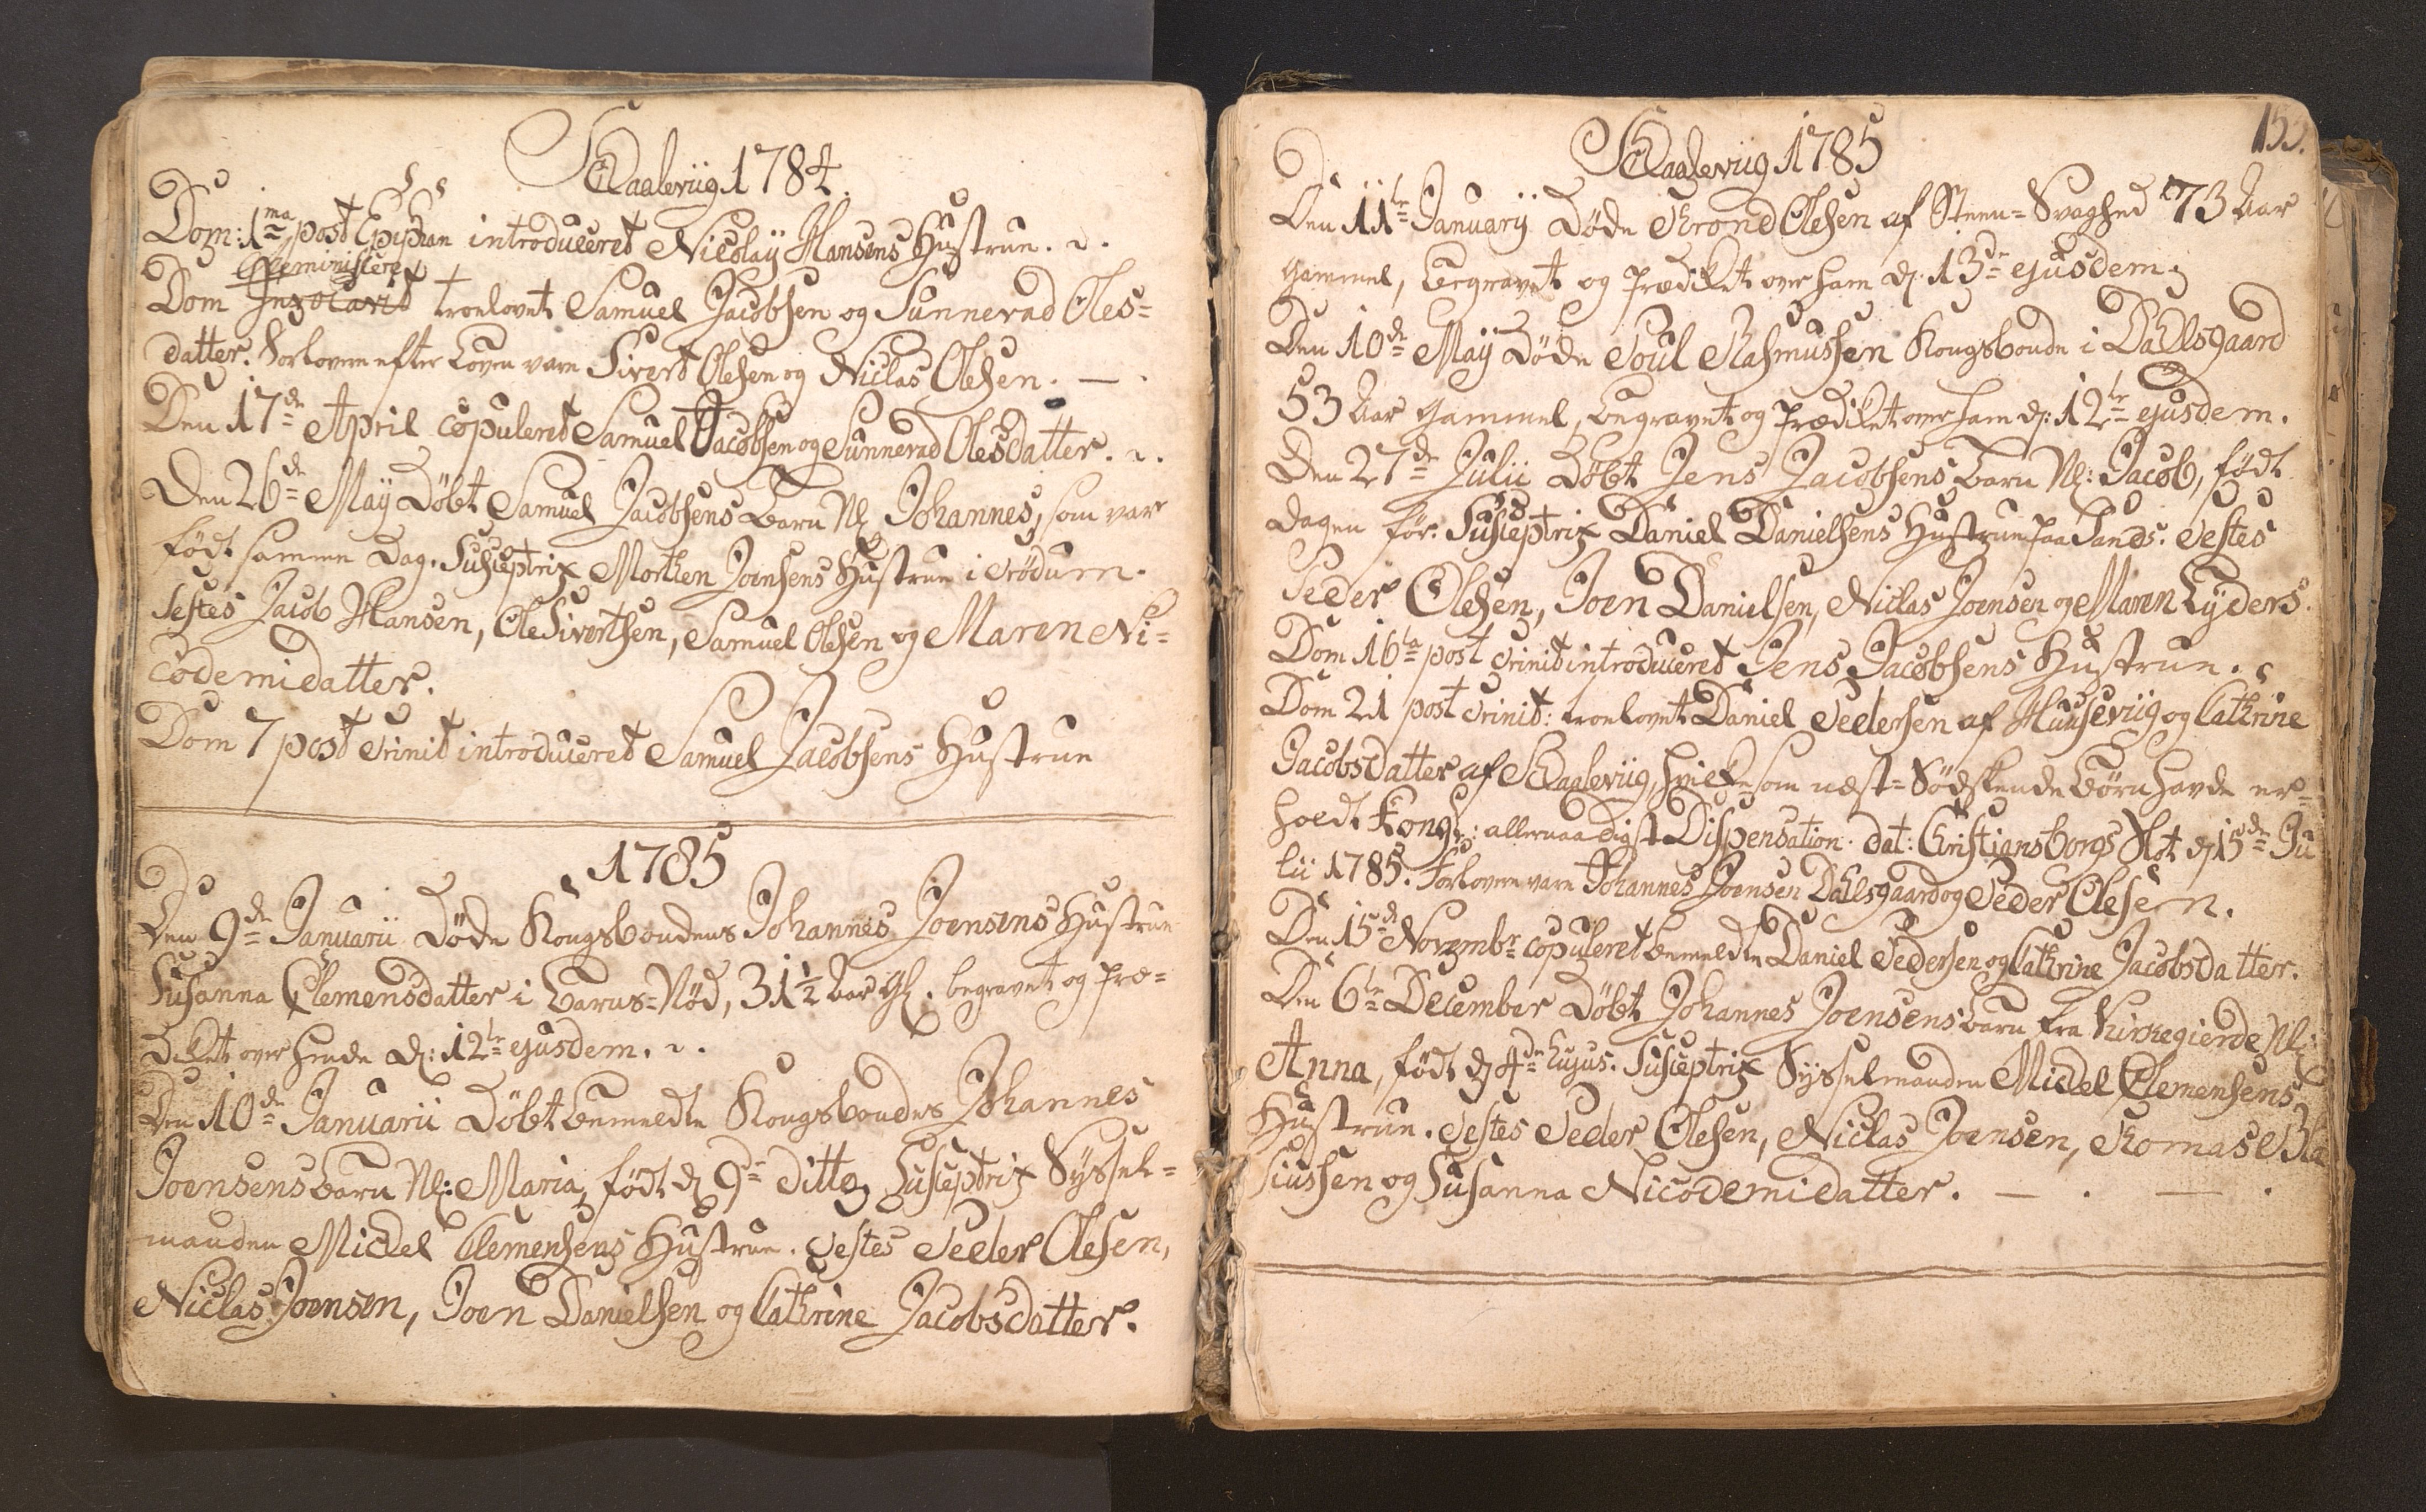 Skaalevijg 1784.
Dom: 1ma post Epiphan introduceret Nicolaÿ Hansens Hustrue.
Reminiscere
Dom Invocavit troelovet Samuel Jacobsen og Sunnevad Oles-
datter. Forlovere efter Loven vare Sivert Olesen og Niclas Olesen. —
Den 17de April copuleret Samuel Jacobsen og Sunnevad Olesdatter.
Den 26de Maÿ Døbt Samuel Jacobsens Barn Nl Johannes, som var
født samme Dag. Susceptrix Morten Joensens Hustrue i Trödum.
Testes Jacob Hansen, Ole Sivertsen, Samuel Olesen og Maren Ni-
codemidatter.
Dom 7 post Trinit introduceret Samuel Jacobsens Hustrue
1785
Den 9de Januarii Døde Kongsbondens Johannes Joensens Hustrue
Susanna Clemensdatter i Barns-Nød, 31½ Aar Gl. begravet og Præ-
diket over hende d: 12te ejusdem.
Den 10de Januarii Døbt bemeldte Kongsbondes Johannes
Joensens Barn Nl: Maria, født d 9de ditto, Susceptrix Syssel-
manden Mickel Clemensens Hustrue. Testes Peder Olesen,
Niclas Joensen, Joen Danielsen og Cathrine Jacobsdatter.
155.
Skaalevijg 1785
Den 11te Januarÿ Døde Trond Olesen af Steen-Svaghed 73 Aar
Gammel, Begravet og Prædiket over ham d. 13de ejusdem.
Den 10de Maÿ Døde Poul Rasmussen Kongsbonde i Dahlsgaard
53 Aar Gammel, Begravet og Prædiket over ham d: 12te ejusdem.
Den 27de Julii Døbt Jens Jacobsens Barn Nl: Jacob, født
Dagen før. Susceptrix Daniel Danielsens Hustrue paa Sand. Testes
Peder Olesen, Joen Danielsen, Niclas Joensen og Maren Lÿders.
Dom 16ta post Trinit introduceret Jens Jacobsens Hustrue.
Dom 21 post Trinit: troelovet Daniel Pedersen af Huusevijg og Cathrine
Jacobsdatter af Skaalevijg, hvilke som næst-Sødskende Børn havde er-
holdt Kongl: allernaadigst Dispensation dat: Christiansborgs Slot d 15de Ju
lii 1785. Forlovere vare Johannes Joensen Dahlsgaard og Peder Olesen.
Den 15de Novembr copuleret bemeldte Daniel Pedersen og Cathrine Jacobsdatter.
Den 6te December Døbt Johannes Joensens Barn fra Kirkegierde Nl:
Anna, født d 4de hujus. Susceptrix Sysselmanden Mickel Clemensens
Hustrue. Testes Peder Olesen, Niclas Joensen, Thomas Bla
siussen og Susanna Nicodemidatter. — . — .